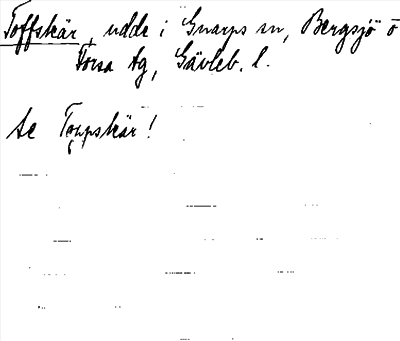 Toffskär, udde i Gnarps sn, Bergsjö o
Forsa tg, Gävleb. l.
se Toppskär!